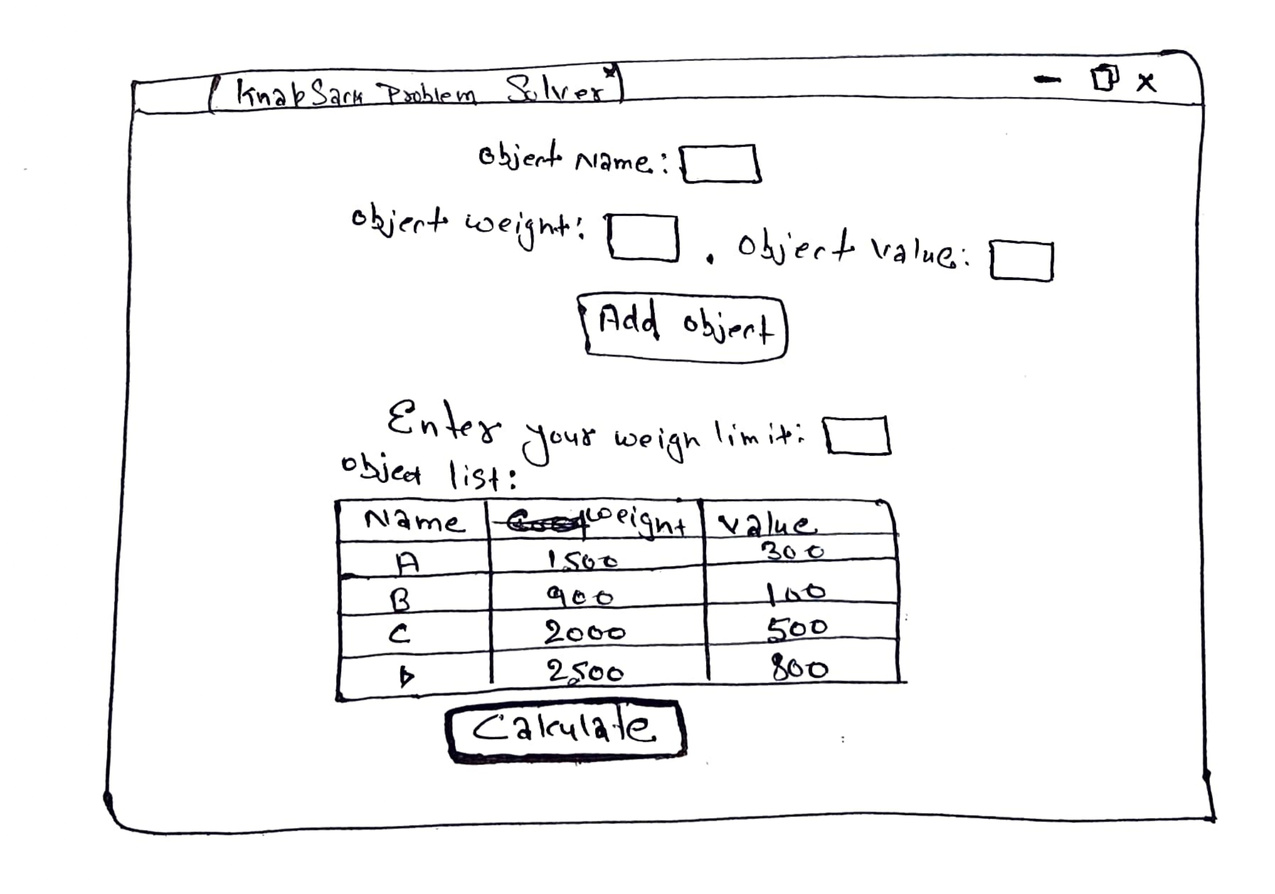 KnabSack Problem Solver x
Object Name:
object weight: . object value:
Add object
Enter your weigh limit:
object list:
Name weight value
A 1500 300
B 900 100
C 2000 500
D 2500 800
Calculate